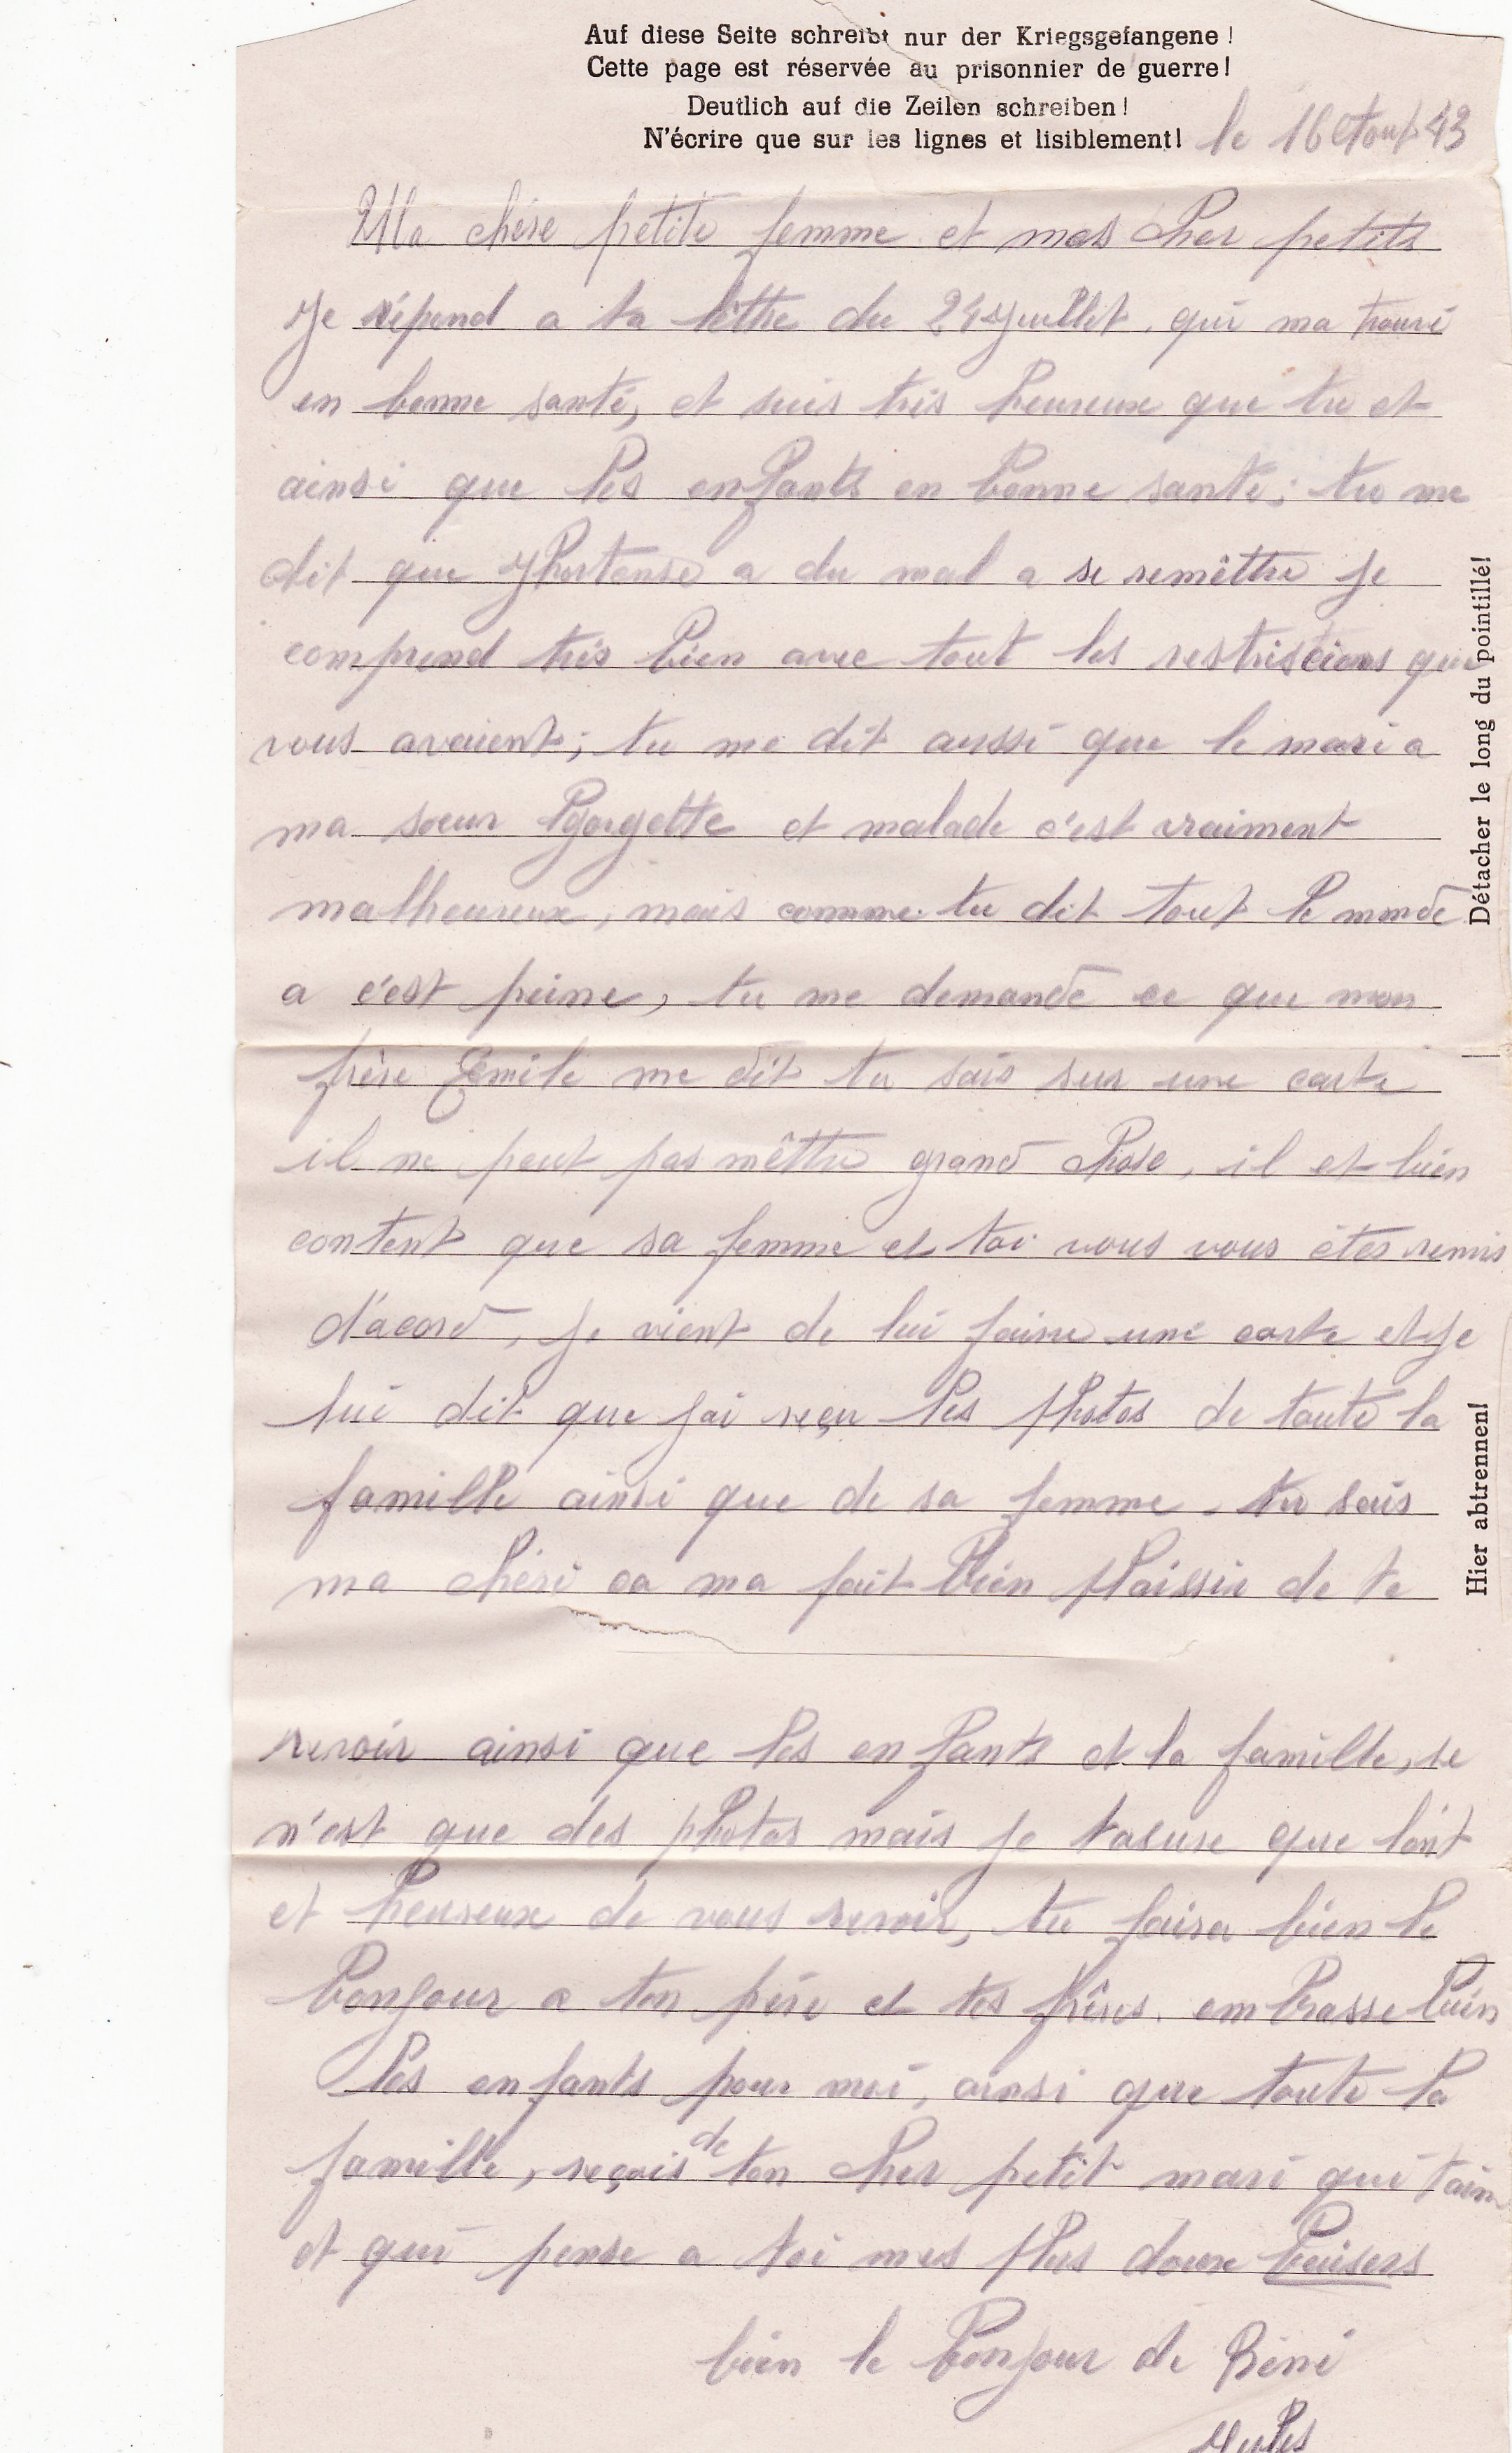 Auf diese Seite schreibt nur der Kriegsgefangene!
Cette page est réservée au prisonnier de guerre!
Deutlich auf die Zeilen schreiben!
N'écrire que sur les lignes et lisiblement!
le 16 Aout 43
Ma chére petite femme et mes cher petits
Je répond a ta lêttre du 24 Juillet, qui ma trouvé
en bonne santé, et suis trés heureux que tu et
ainsi que les enfants en bonne santé; tu me
dit que Hortense a du mal a se remêttre je
comprend trés bien avec tout les restriscions que
vous avaient; tu me dit aussi que le mari a
ma soeur et malade c'est vraiment
malheureux, mais comme tu dit tout le monde
a c'est peine, tu me demande ce que mon
frère Emile me dit tu sais sur une carte
il ne peut pas mêttre grand chose, il et bien
content que sa femme et toi vous vous êtes remis
d'acord, je vient de lui faire une carte et je
lui dit que jai reçu les photos de toute la
famille ainsi que de sa femme. tu sais
ma chéri ca ma fait bien plaissir de te
revoir ainsi que les enfants et la famille, se
n'est que des photos mais je tasure que l'ont
et heureux de vous revoir, tu faira bien le
bonjour a ton pére et tes frêres. embrasse bien
les enfants pour moi, ainsi que toute la
famille, reçois de ton cher petit mari qui taim
et qui pense a toi mes plus doux baisers
bien le bonjour de Réné
Jules
Détacher le long du pointillé!
Hier abtrennen!